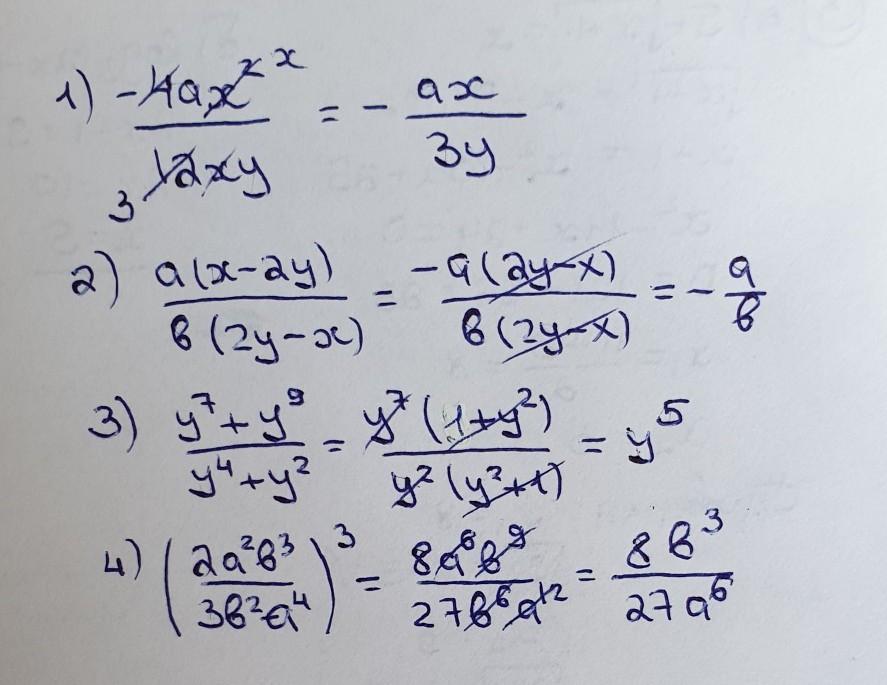 1) -4ax²/12xy x 3 = - ax/3y
2) a(x-2y)/в(2y-x) = -a(2y-x)/в(2y-x) = - a/в
3) (y⁷+y⁹)/(y⁴+y²) = y⁷(1+y²)/y²(y²+1) = y⁵
4) (2a²в³/3в²a⁴)³ = 8a⁶в⁹/27в⁶a¹² = 8в³/27a⁶